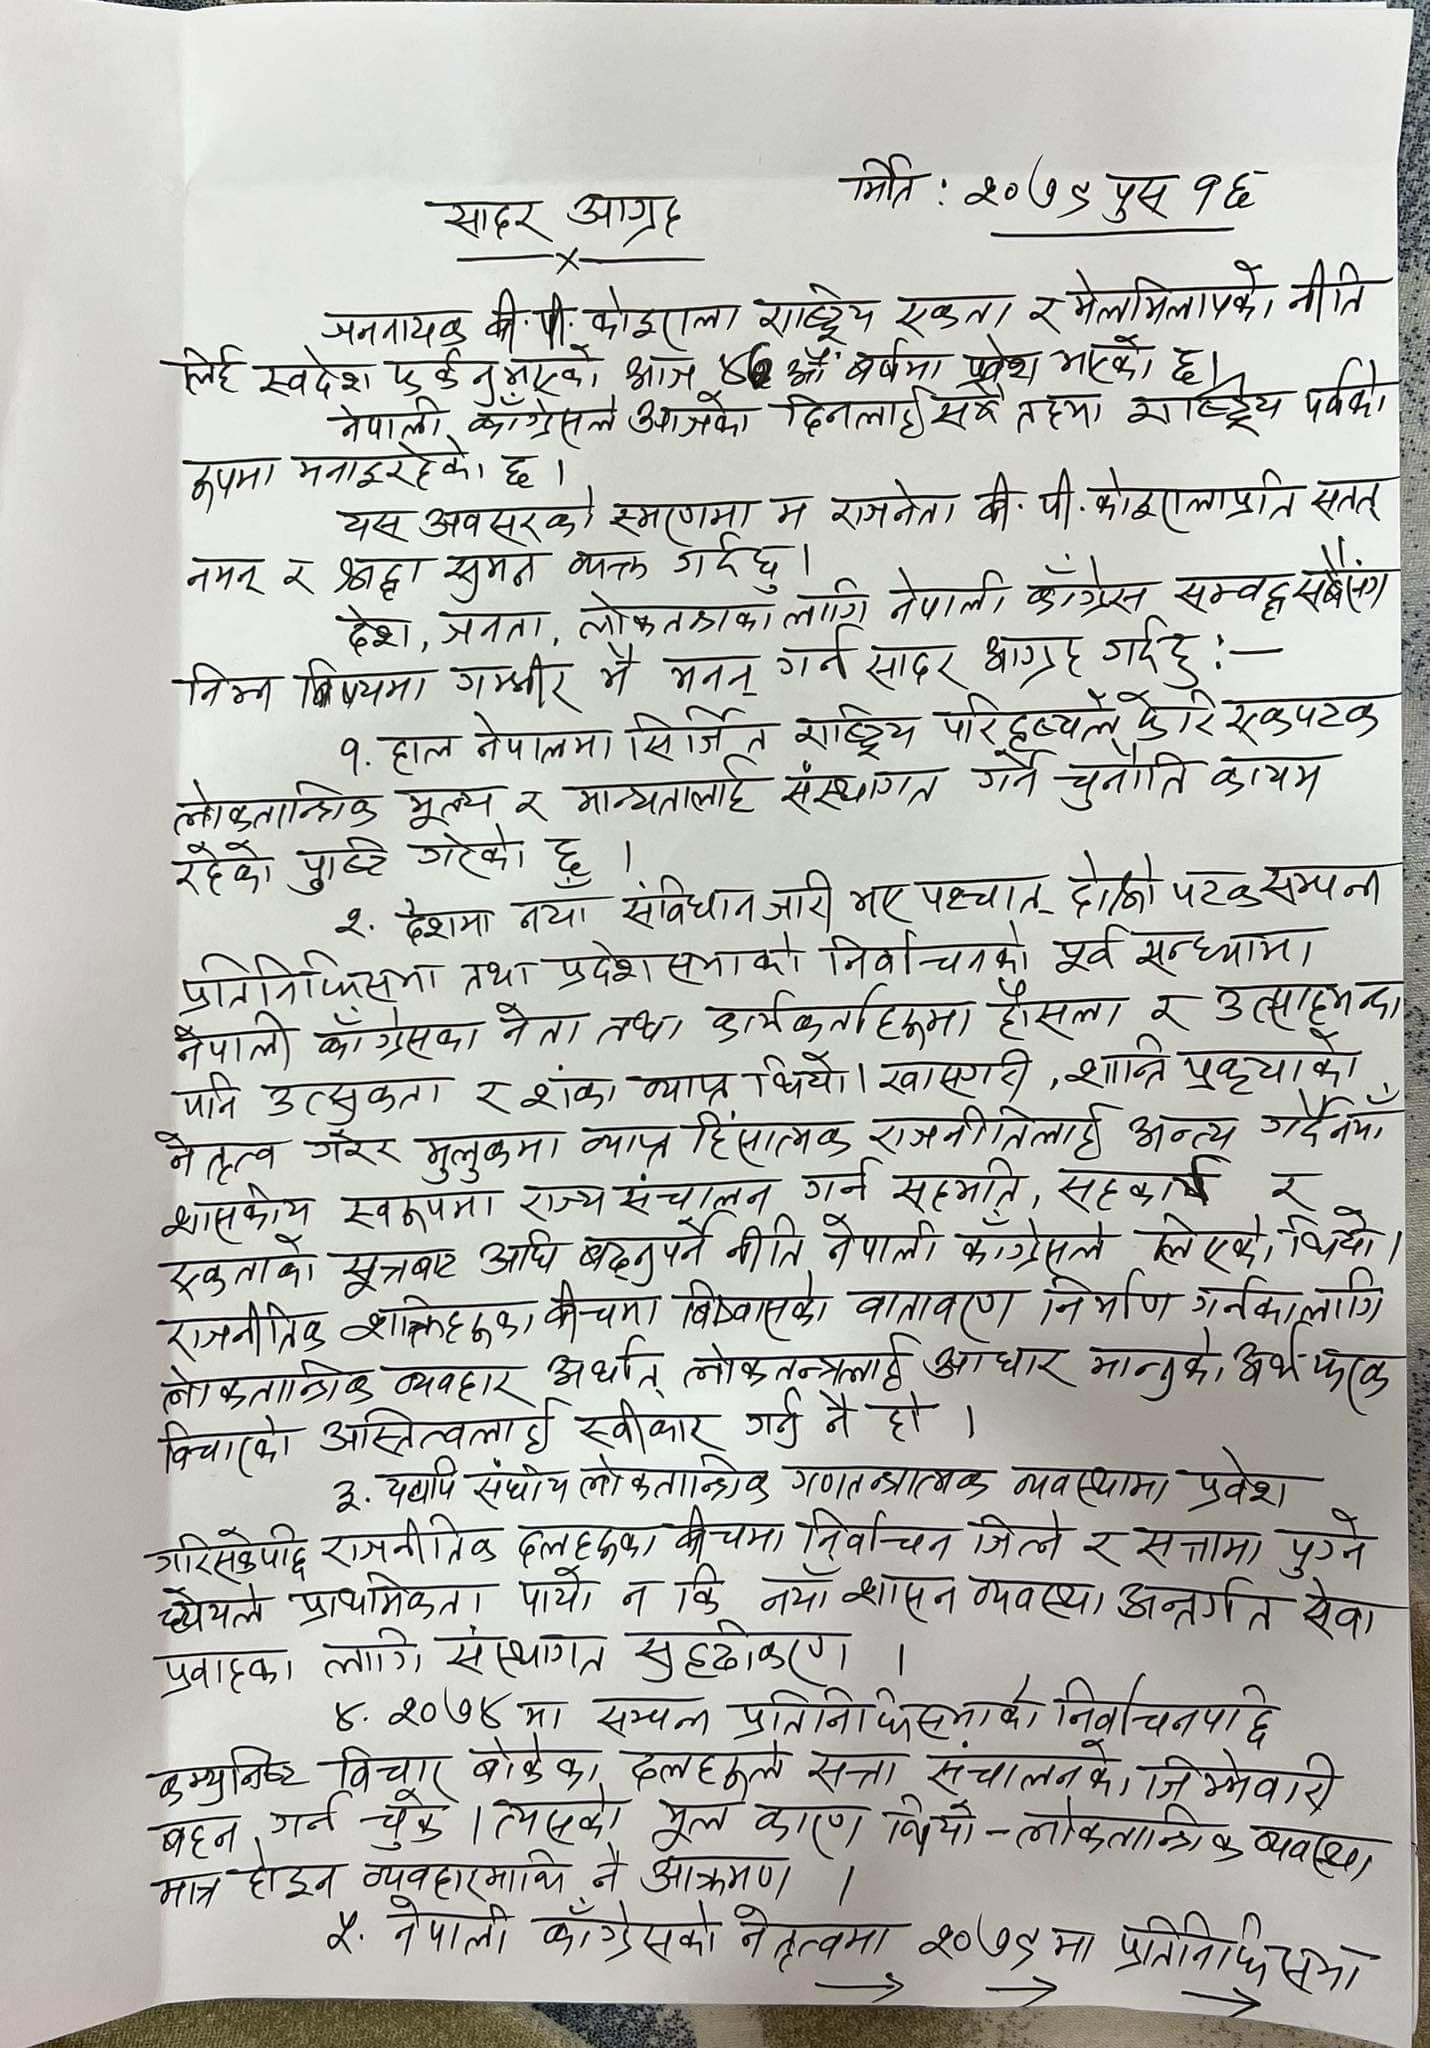 मिति : २०७९ पुस १६
सादर आग्रह
जननायक बी. पी. कोइराला राष्ट्रिय एकता र मेलमिलापको नीति
लिई स्वदेश फर्कनुभएको आज ४६ औं बर्षमा प्रवेश भएको छ।
नेपाली काँग्रेसले आजको दिनलाई सबै तहमा राष्ट्रिय पर्वको
रूपमा मनाइरहेको छ।
यस अवसरको स्मरणमा म राजनेता बी. पी. कोइरालाप्रति सतत्
नमन् र श्रद्धा सुमन व्यक्त गर्दछु।
देश, जनता, लोकतन्त्रका लागि नेपाली काँग्रेस सम्वद्ध सबैसंग
निम्न बिषयमा गम्भीर भै मनन् गर्न सादर आग्रह गर्दछु :—
१. हाल नेपालमा सिर्जित राष्ट्रिय परिदृष्यले फेरि एकपटक
लोकतान्त्रिक मूल्य र मान्यतालाई संस्थागत गर्ने चुनौति कायम
रहेको पुष्टि गरेको छ।
२. देशमा नयाँ संविधान जारी भए पश्चात् दोस्रो पटक सम्पन्न
प्रतिनिधिसभा तथा प्रदेशसभाको निर्वाचनको पूर्व सन्ध्यामा
नेपाली काँग्रेसका नेता तथा कार्यकर्ताहरूमा हौसला र उत्साहभन्दा
पनि उत्सुकता र शंका व्याप्त थियो। खासगरी, शान्ति प्रकृयाको
नेतृत्व गरेर मुलुकमा व्याप्त हिंसात्मक राजनीतिलाई अन्त्य गर्दै नयाँ
शासकीय स्वरूपमा राज्य संचालन गर्न सहमति, सहकार्य र
एकताको सूत्रबाट अघि बढ्नुपर्ने नीति नेपाली काँग्रेसले लिएको थियो।
राजनीतिक शक्तिहरूका बीचमा बिश्वासको वातावरण निर्माण गर्नका लागि
लोकतान्त्रिक व्यवहार अर्थात् लोकतन्त्रलाई आधार मान्नुको अर्थ फरक
विचारको अस्तित्वलाई स्वीकार गर्नु नै हो ।
३. यद्यपि संघीय लोकतान्त्रिक गणतन्त्रात्मक व्यवस्थामा प्रवेश
गरिसकेपछि राजनीतिक दलहरूका बीचमा निर्वाचन जित्ने र सत्तामा पुग्ने
ध्येयले प्राथमिकता पायो न कि नयाँ शासन व्यवस्था अन्तर्गत सेवा
प्रवाहका लागि संस्थागत सुदृढीकरण ।
४. २०७४ मा सम्पन्न प्रतिनिधिसभाको निर्वाचनपछि
कम्युनिष्ट विचार बोकेका दलहरूले सत्ता संचालनको जिम्मेवारी
बहन गर्न चुके। त्यसको मूल कारण थियो – लोकतान्त्रिक व्यवस्था
मात्र होइन व्यवहारमाथि नै आक्रमण ।
५. नेपाली काँग्रेसको नेतृत्वमा २०७९ मा प्रतिनिधिसभा